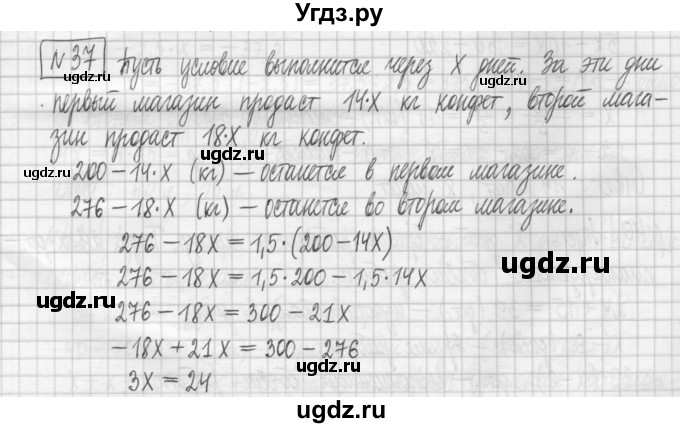 Угдз.ру
N37 Пусть условие выполнится через X дней. За эти дни
первый магазин продаст 14·X кг конфет, второй мага-
зин продаст 18·X кг конфет.
200 – 14·X (кг) – останется в первом магазине.
276 – 18·X (кг) – останется во втором магазине.
276 – 18X = 1,5·(200 – 14X)
276 – 18X = 1,5·200 – 1,5·14X
276 – 18X = 300 – 21X
–18X + 21X = 300 – 276
3X = 24
ugdz.ru
ugdz.ru
ugdz.ru
ugdz.ru
ugdz.ru
ugdz.ru
ugdz.ru
ugdz.ru
ugdz.ru